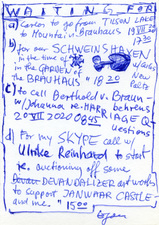 WAITING FOR
a) Carlos to go from TISON LAKE 19 VII 20
to Mountain Brauhaus / 17 30
b) for our SCHWEINSHAXEN
in the time of
in the GARDEN of
the BRAUHAUS " 18 20
c) to call Berthold v. Braun-
behrens
w/Johanna re: MARRIAGE Q-
20 VII 2020 0845 uestions
d) For my SKYPE call w/
Ulrike Reinhard to start
re. auctioning off some
DEVANDALIZED artworks
to support JANWAAR CASTLE-
and me. " 15 00